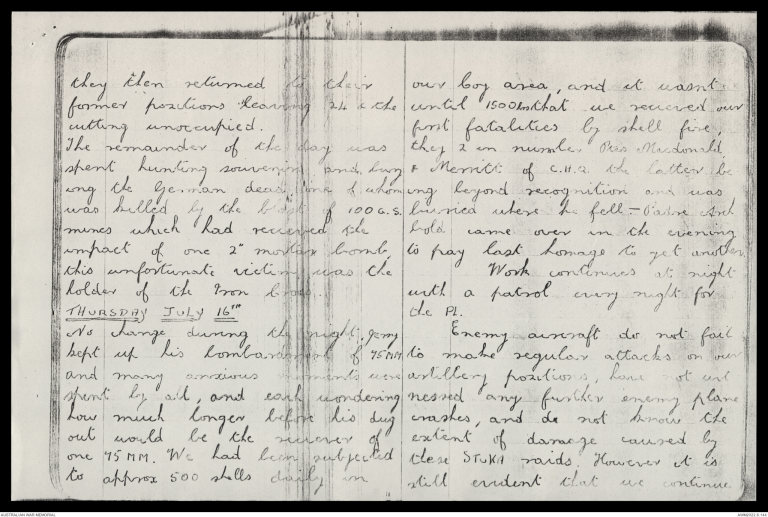 they then returned to their
former positions leaving 24 & the
cutting unoccupied.
The remainder of the day was
spent hunting souvenirs and bury
ing the German dead, one of whom
was killed by the blast of 100 G.S.
mines which had recieved the
impact of one 2" mortar bomb,
this unfortunate victim was the
holder of the Iron Cross.
THURSDAY JULY 16TH
No change during the night, Jerry
kept up his bombardment of 75MM
and many anxious moments were
spent by all, and each wondering
how much longer before his dug
out would be the reciever of
one 75 MM. We had been subjected
to approx 500 shells daily in
our Coy area, and it wasnt
until 1500 hrs that we recieved our
first fatalities by shell fire,
they 2 in number Ptes Macdonald
& Merritt of C.H.Q. the latter be
ing beyond recognition and was
burried where he fell. – Padre Arch
bold came over in the evening
to pay last homage to yet another
Work continues at night
with a patrol every night for
the Pl.
Enemy aircraft do not fail
to make regular attacks on our
artillery positions, have not wit
nessed any further enemy plane
crashes, and do not know the
extent of damage caused by
these STUKA raids, However it is
still evident that we continue
AUSTRALIAN WAR MEMORIAL